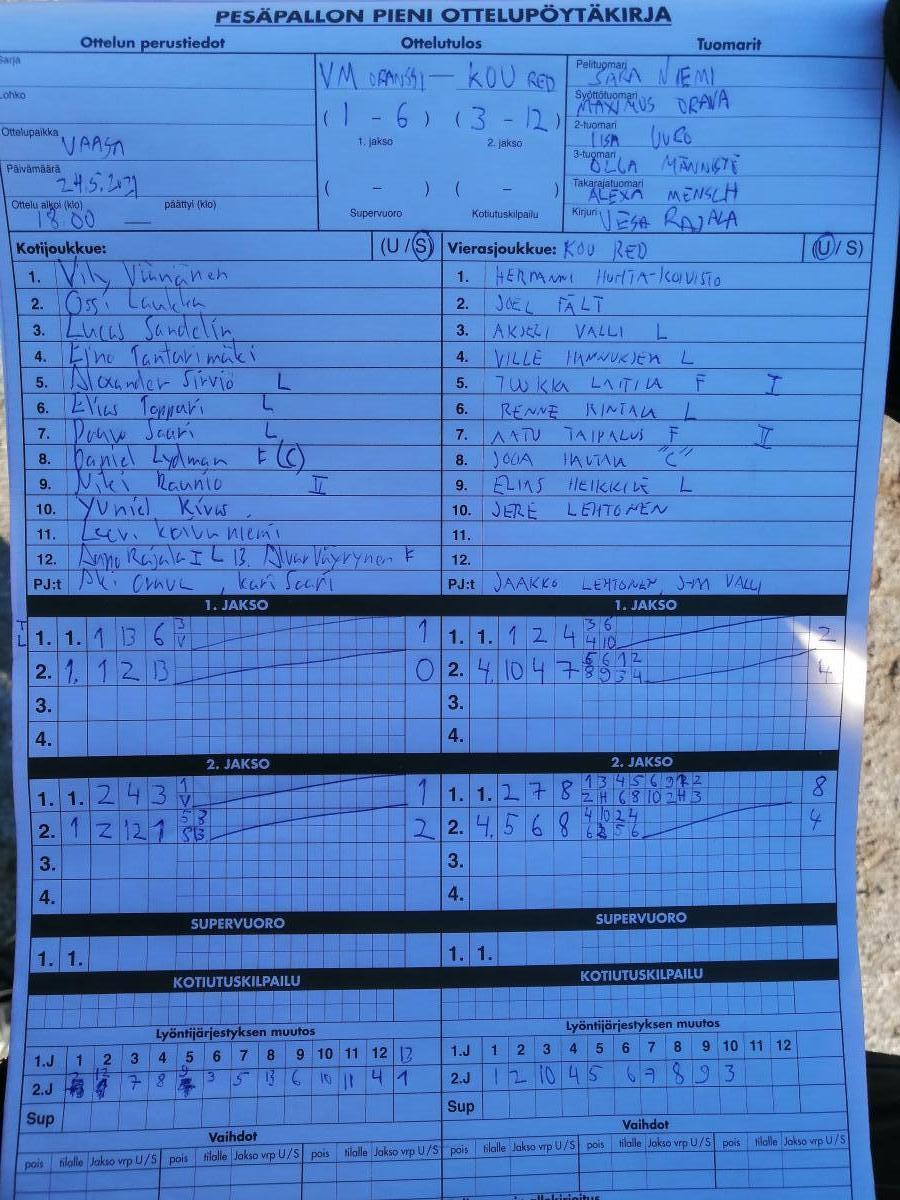 PESÄPALLON PIENI OTTELUPÖYTÄKIRJA
Ottelun perustiedot Ottelutulos Tuomarit
Sarja
VM ORANSSI — KOU RED
Pelituomari SARA NIEMI
Lohko
Syöttötuomari MAXIMUS ORAVA
( 1 - 6 ) ( 3 - 12 )
2-tuomari IISA UURO
Ottelupaikka VAASA
1. jakso 2. jakso
3-tuomari OLLA
Päivämäärä 24.5.2021
Takarajatuomari ALEXA MENSCH
( - ) ( - )
Ottelu alkoi (klo) 18.00 — päättyi (klo)
Supervuoro Kotiutuskilpailu
Kirjuri VESA RAJALA
Kotijoukkue: (U / S) Vierasjoukkue: KOU RED (U / S)
1. Väinänen 1. HERMANNI HUHTA-KOIVISTO
2. Ossi Laukka 2. JOEL FÄLT
3. Lucas Sandelin 3. AKSELI VALLI L
4. Eino Tantarimäki 4. VILLE HANNUKSEN L
5. Alexander Sirviö L 5. TUUKKA LAITILA F I
6. Elias Toppari L 6. RENNE RINTALA L
7. Paavo Saari L 7. AATU TAIPALUS F II
8. Daniel Lydman F (C) 8. JOOA HAUTALA "C"
9. Niki Raunio II 9. ELIAS HEIKKILÄ L
10. Yuniel Rivas 10. JERE LEHTONEN
11. Leevi Koivuniemi 11.
12. Rajala I L 13. Alvar Väyrynen F 12.
PJ:t Aki Orava, Kari Saari PJ:t JAAKKO LEHTONEN, J-M VALLI
1. JAKSO 1. JAKSO
TL 1. 1. 1 13 6 3 V 1 1. 1. 1 2 4 3 6 4 10 2
2. 1. 1 2 13 0 2. 4. 10 4 7 5 6 1 2 8 9 3 4 4
3. 3.
4. 4.
2. JAKSO 2. JAKSO
1. 1. 2 4 3 1 V 1 1. 1. 2 7 8 8
2. 1 2 12 1 2 2. 4. 5 6 8 4
3. 3.
4. 4.
SUPERVUORO SUPERVUORO
1. 1. 1. 1.
KOTIUTUSKILPAILU KOTIUTUSKILPAILU
Lyöntijärjestyksen muutos Lyöntijärjestyksen muutos
1.J 1 2 3 4 5 6 7 8 9 10 11 12 13 1.J 1 2 3 4 5 6 7 8 9 10 11 12
2.J 2 12 7 8 9 3 5 13 6 10 11 4 1 2.J 1 2 10 4 5 6 7 8 9 3
Sup Sup
Vaihdot Vaihdot
pois tilalle Jakso vrp U/S pois tilalle Jakso vrp U/S pois tilalle Jakso vrp U/S pois tilalle Jakso vrp U/S pois tilalle Jakso vrp U/S pois tilalle Jakso vrp U/S